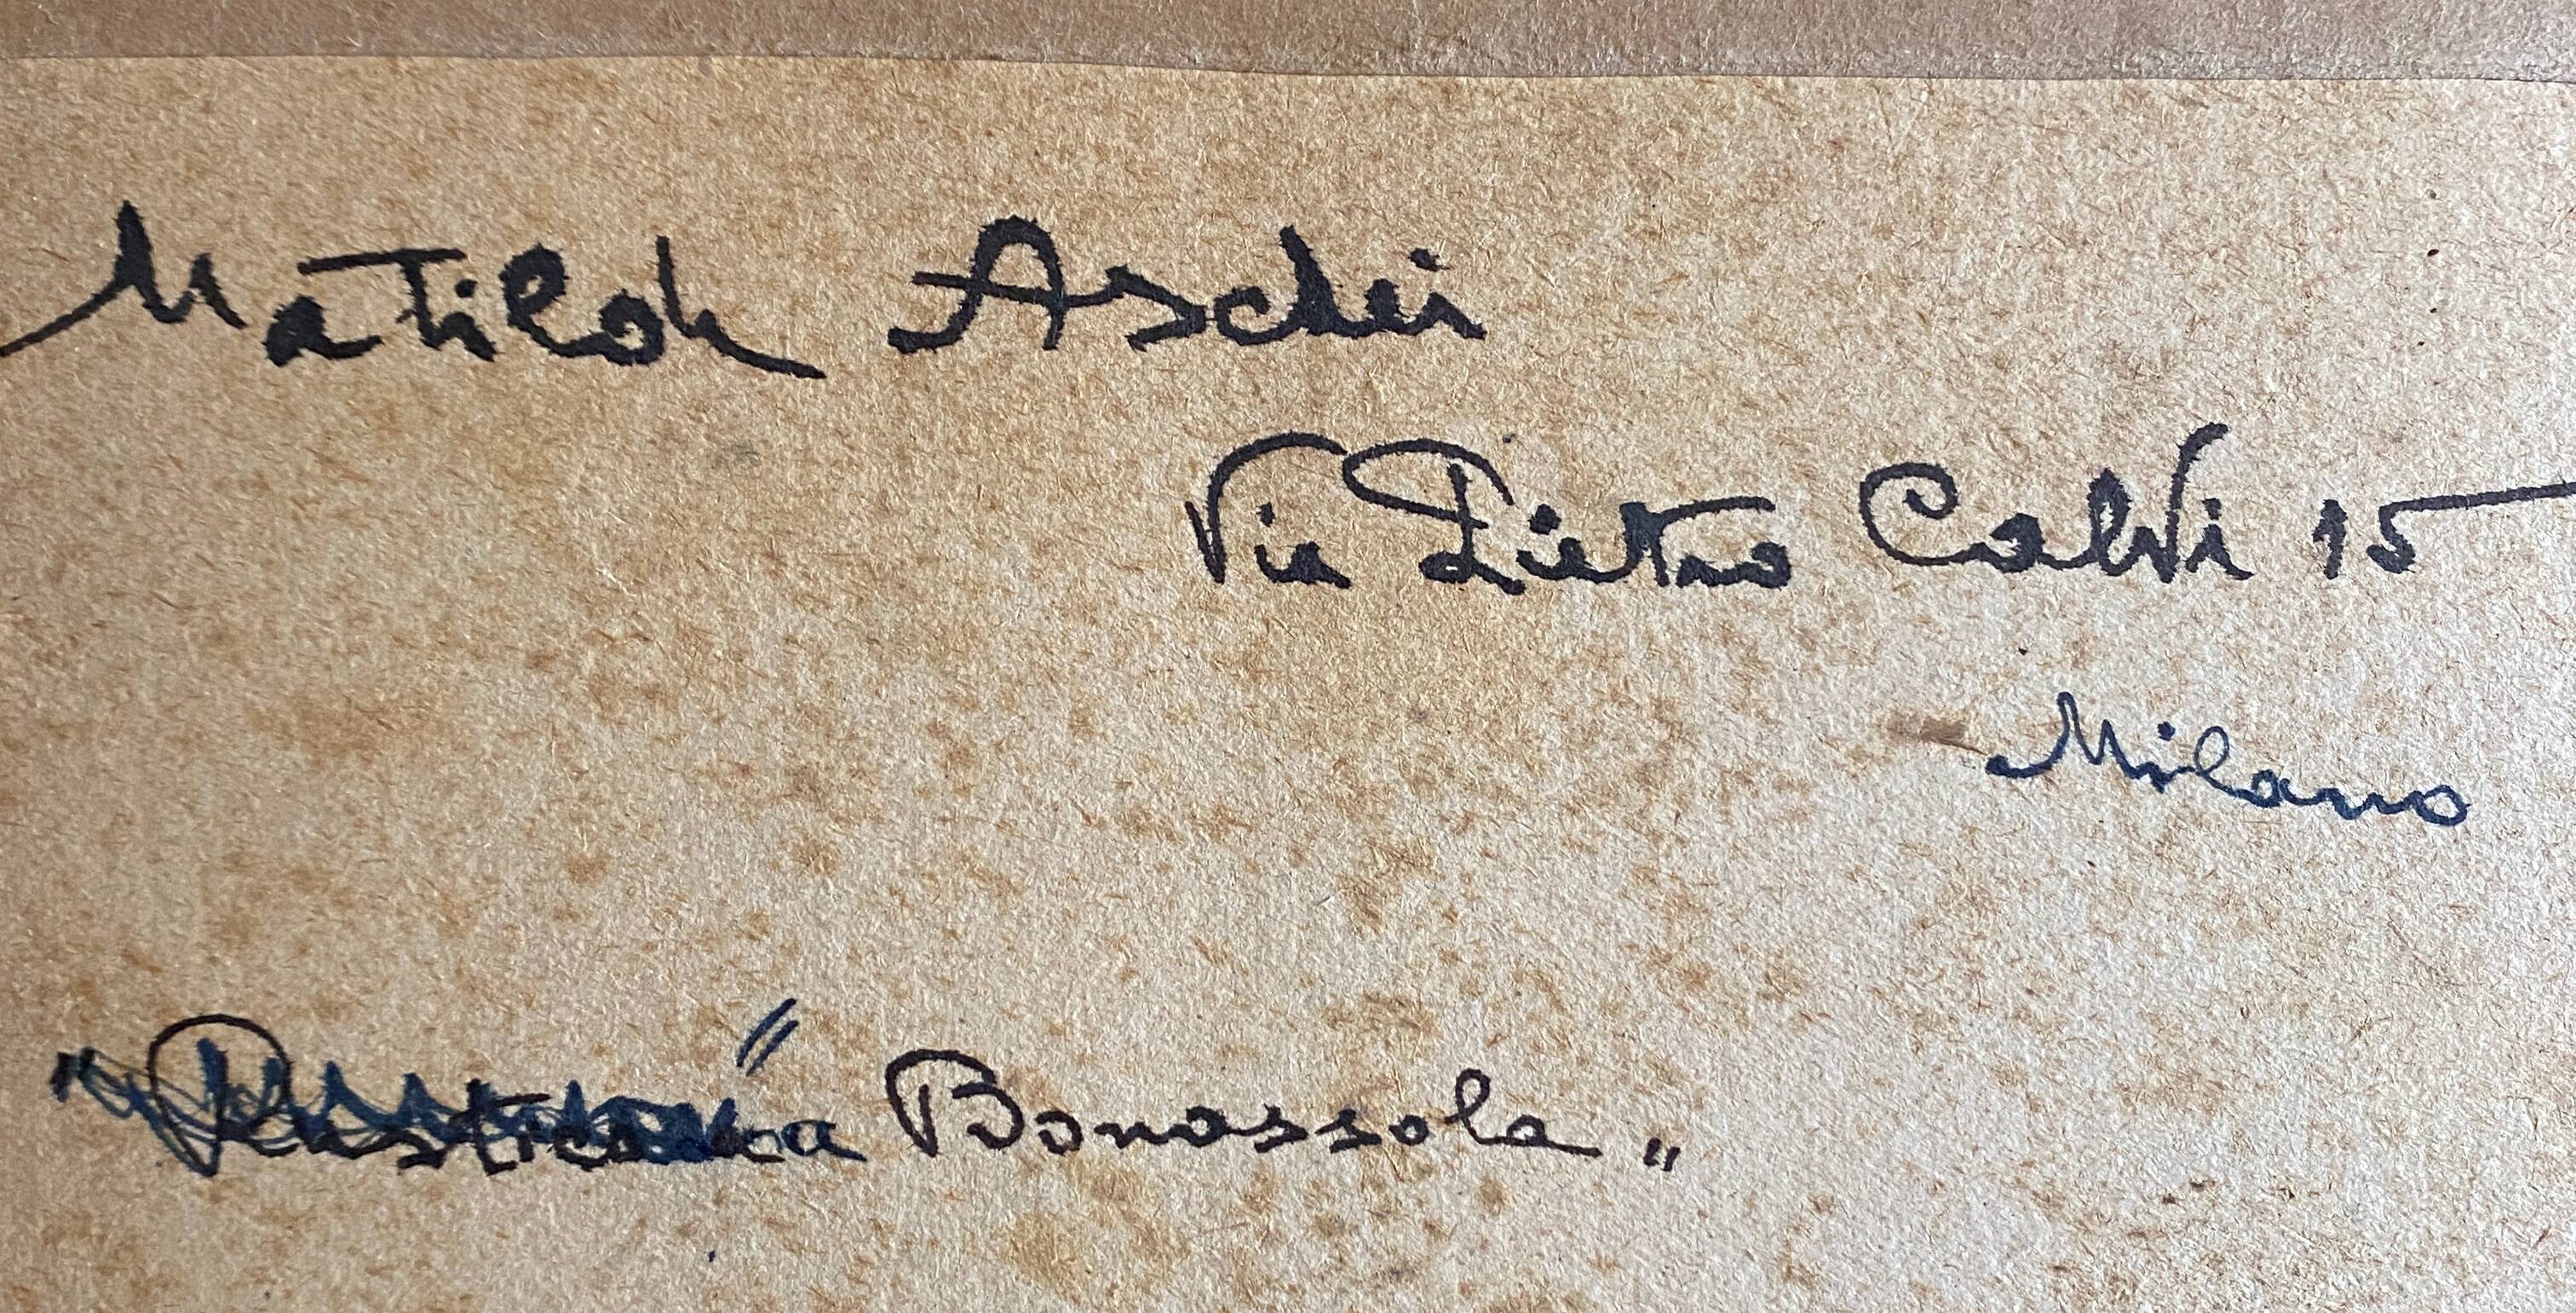 Matilde Aschei
Via Pietro Calvi 15
Milano
" a Bonassola "